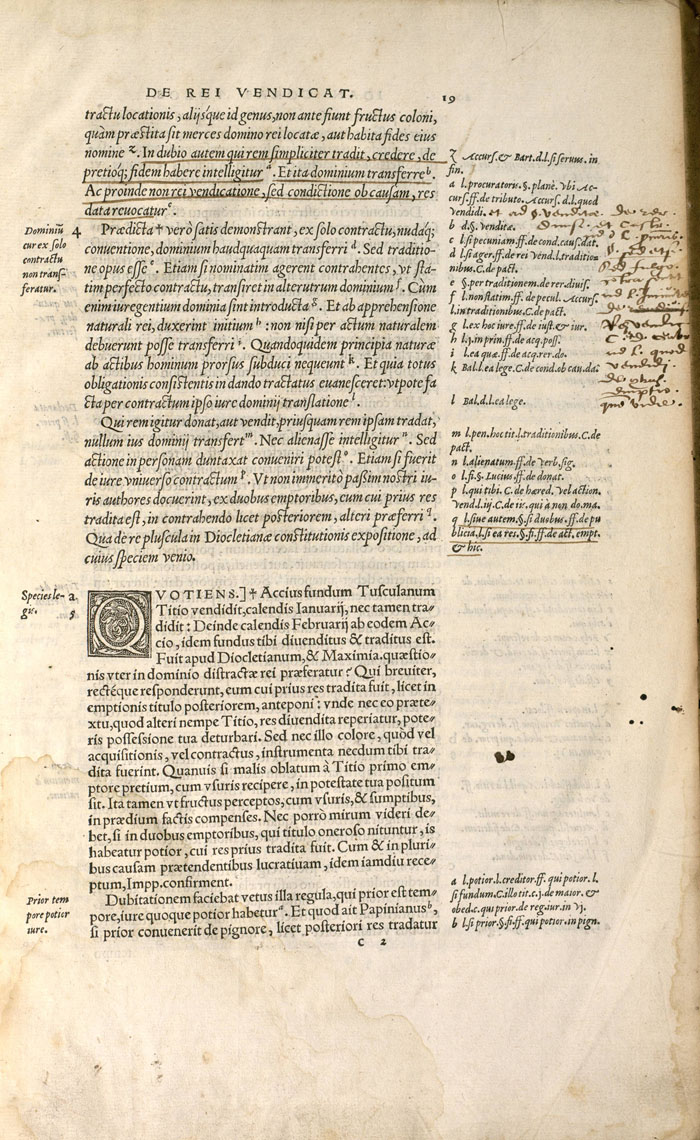 DE REI VENDICAT.
19
tractu locationis, alijsque id genus, non ante fiunt fructus coloni,
quàm præstita sit merces domino rei locatæ, aut habita fides eius
nomine z. In dubio autem qui rem simpliciter tradit, credere, de
pretioque fidem habere intelligitur a. Et ita dominium transferre b.
Ac proinde non rei vendicatione, sed condictione ob causam, res
data reuocatur c.
Prædicta † verò satis demonstrant, ex solo contractu, nudaque
conuentione, dominium haudquaquam transferri d. Sed traditio-
ne opus esse e. Etiam si nominatim agerent contrahentes, vt sta-
tim perfecto contractu, transiret in alterutrum dominium f. Cum
enim iure gentium dominia sint introducta g. Et ab apprehensione
naturali rei, duxerint initium h: non nisi per actum naturalem
debuerunt posse transferri i. Quandoquidem principia naturæ
ab actibus hominum prorsus subduci nequeunt k. Et quia totus
obligationis consistentis in dando tractatus euanesceret: vtpote fa
cta per contractum ipso iure dominij translatione l.
Qui rem igitur donat, aut vendit, priusquam rem ipsam tradat,
nullum ius dominij transfert m. Nec alienasse intelligitur n. Sed
actione in personam duntaxat conueniri potest o. Etiam si fuerit
de iure vniuerso contractum p. Vt non immeritò passim nostri iu-
ris authores docuerint, ex duobus emptoribus, eum cui prius res
tradita est, in contrahendo licet posteriorem, alteri præferri q.
Qua de re pluscula in Diocletianæ constitutionis expositione, ad
cuius speciem venio.
QVOTIENS.] † Accius fundum Tusculanum
Titio vendidit, calendis Ianuarij, nec tamen tra-
didit: Deinde calendis Februarij ab eodem Ac-
cio, idem fundus tibi diuenditus & traditus est.
Fuit apud Diocletianum, & Maximia. quæstio-
nis vter in dominio distractæ rei præferatur? Qui breuiter,
rectéque responderunt, eum cui prius res tradita fuit, licet in
emptionis titulo posteriorem, anteponi: vnde nec eo præte-
xtu, quod alteri nempe Titio, res diuendita reperiatur, pote-
ris possessione tua deturbari. Sed nec illo colore, quòd vel
acquisitionis, vel contractus, instrumenta necdum tibi tra-
dita fuerint. Quanuis si malis oblatum à Titio primo em-
ptore pretium, cum vsuris recipere, in potestate tua positum
sit. Ita tamen vt fructus perceptos, cum vsuris, & sumptibus,
in prædium factis compenses. Nec porrò mirum videri de-
bet, si in duobus emptoribus, qui titulo oneroso nituntur, is
habeatur potior, cui res prius tradita fuit. Cum & in pluri-
bus causam prætendentibus lucratiuam, idem iamdiu rece-
ptum, Impp. confirment.
Dubitationem faciebat vetus illa regula, qui prior est tem-
pore, iure quoque potior habetur a. Et quod ait Papinianus b,
si prior conuenerit de pignore, licet posteriori res tradatur
C 2
Dominiũ 4
cur ex solo
contractu
non trans-
feratur.
Species le- a.
gis. 5
Prior tem
pore potior
iure.
z Accurs. & Bart. d. l. si seruus. in
fin.
a l. procuratoris. §. planè. vbi Ac-
curs. ff. de tributo. Accurs. d. l. quod
vendidi.
b d. §. venditæ.
c l. si pecuniam. ff. de cond. cau. dat.
d l. si ager. ff. de rei vend. l. tradition
nibus. C. de pact.
e §. per traditionem. de rer. diuis.
f l. non statim. ff. de pecul. Accurs.
l. in traditionibus. C. de pact.
g l. ex hoc iure. ff. de iust. & iur.
h l. 1. in prin. ff. de acq. poss.
i l. ea quæ. ff. de acq. rer. do.
k Bal. l. ea lege. C. de cond. ob cau. da.
l Bal. d. l. ea lege.
m l. pen. hoc tit. l. traditionibus. C. de
pact.
n l. alienatum. ff. de verb. sig.
o l. si. §. Lucius. ff. de donat.
p l. qui tibi. C. de hæred. vel action.
vend. l. iij. C. de iis. qui à non do. ma.
q l. siue autem. §. si duobus. ff. de pu
blicia. l. si ea res. §. fi. ff. de act. empt.
& hic.
a l. potior. l. creditor. ff. qui potior. l.
si fundum. C. illo tit. c. j. de maior. &
obed. c. qui prior. de reg. iur. in vj.
b l. si prior. §. fi. ff. qui potior. in pign.